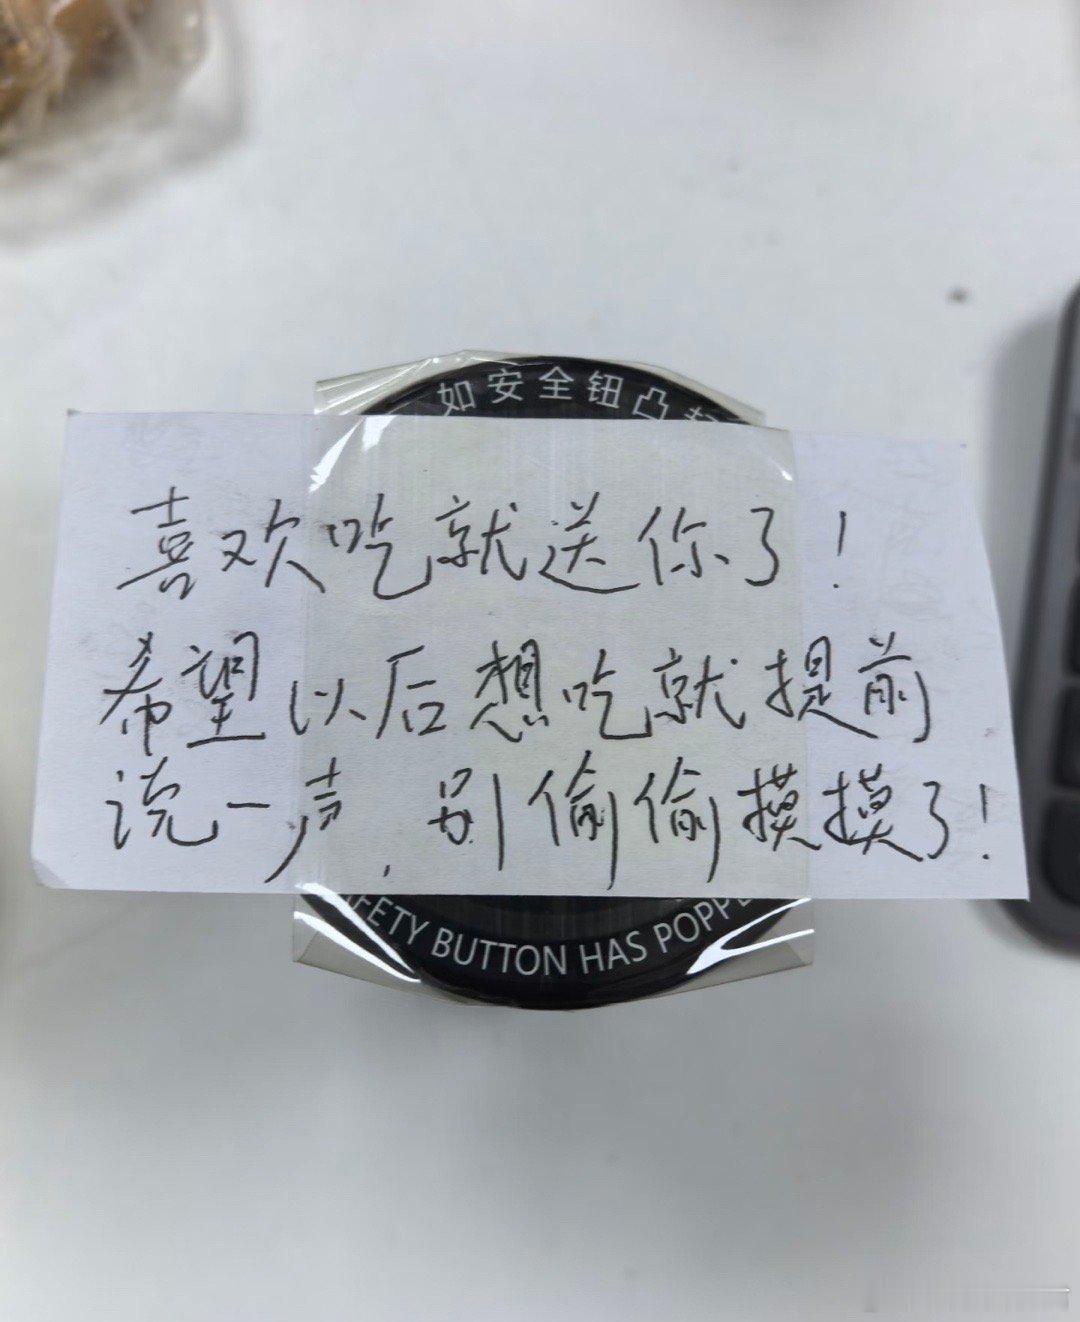 如安全钮凸
喜欢吃就送你了!
希望以后想吃就提前
说一声,别偷偷摸摸了!
FETY BUTTON HAS POPPE